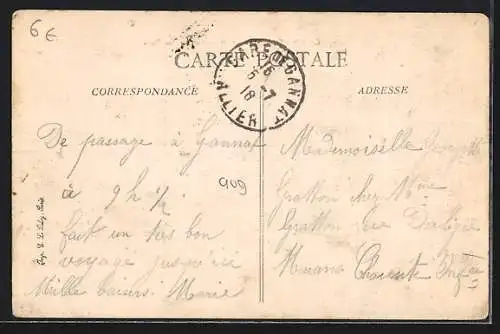 6 €
CARTE POSTALE
GARE DE GANNAT
16
5 -7
18
ALLIER
CORRESPONDANCE
ADRESSE
De passage à Gannat
à 9 h 1/2
fait un très bon
voyage jusqu'ici
Mille baisers Marie
909
Mademoiselle
Gratton chez Mme
Gratton rue
Marans Charente Infre